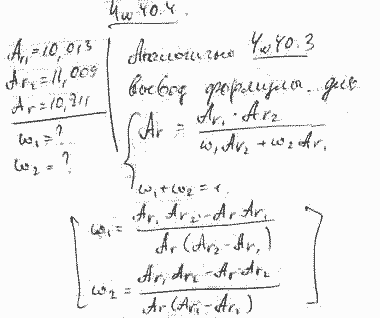 4w40.4.
Ar₁=10,013
Ar₂=11,009
Ar=10,811
w₁=?
w₂=?
Аналогично 4w40.3
вывод формулы для
{ Ar = Ar₁ · Ar₂ / w₁Ar₂ + w₂Ar₁
w₁+w₂=1
[ w₁ = Ar₁Ar₂ - ArAr₁ / Ar(Ar₂-Ar₁)
w₂ = Ar₁Ar₂ - ArAr₂ / Ar(Ar₁-Ar₂) ]